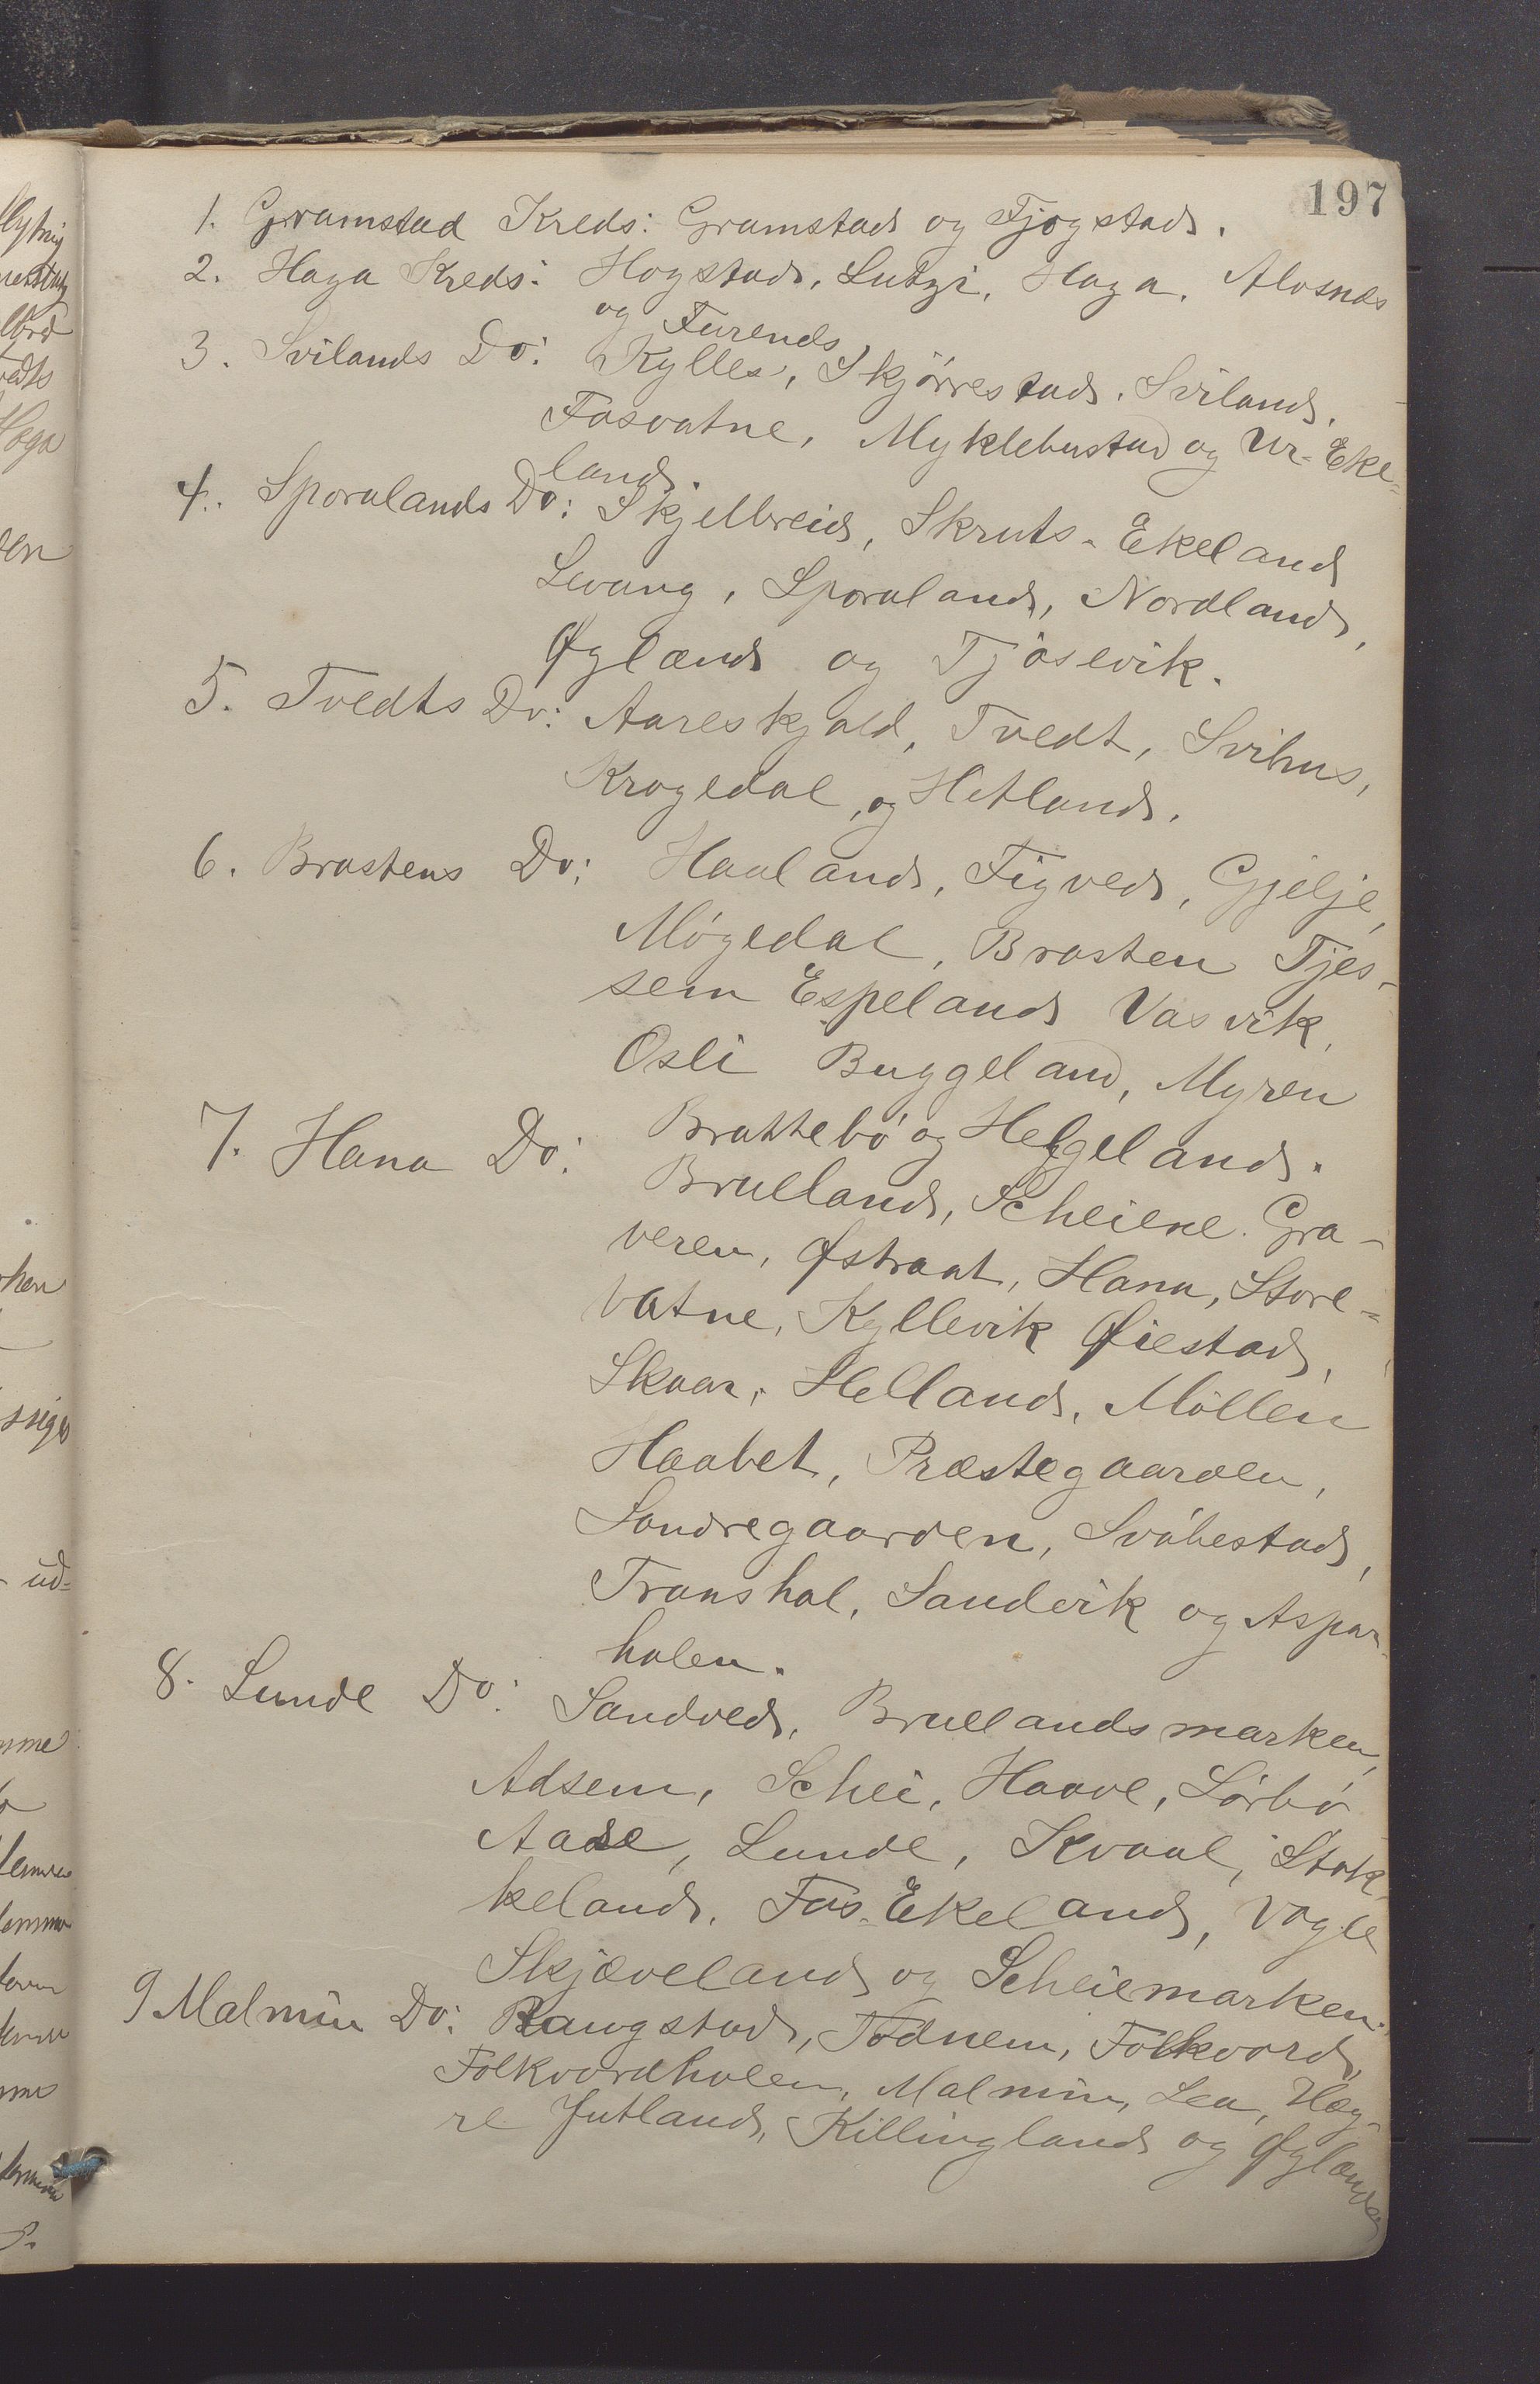 197
1. Gramstad Kreds: Gramstad og Fjogstad.
2. Haga Kreds: Hogstad, Lutzi, Haga, Alvsnæs
og Furenes
3. Svilands Do: Kylles, Skjørestad, Sviland,
Fosvatne, Myklebustad og Ur-Eke-
land.
4. Sporalands Do: Skjelbreid, Skruts-Ekeland
Levang, Sporaland, Nordland,
Øgland og Tjøsevik.
5. Tvedts Do: Aareskjold, Tvedt, Svihus,
Krogedal, og Hetland.
6. Brastens Do: Haaland, Figved, Gjelje,
Møgedal, Brasten Tjes-
sem Espeland Vasvik,
Osli Buggeland, Myren
Brattebø og Helgeland.
7. Hana Do:
Brulland, Scheiene. Gra-
veren, Østraat, Hana, Store-
vatne, Kyllevik Øiestad,
Skaar, Helland, Møllen
Haabet, Præstegaarden,
Søndregaarden, Svåbestad,
Transhol, Sandvik og Aspar-
holen.
8. Lunde Do: Sandved, Brullandsmarken,
Adsem, Schei, Haave, Sørbø
Aase, Lunde, Kvaal, Stok-
keland, Fos-Ekeland, Vagle
Skjæveland og Scheiemarken.
9 Malmin Do: Raugstad, Todnem, Folkvord,
Folkvordholen, Malmin, Lea, Høg-
re Jutland, Killingland og Øglænd